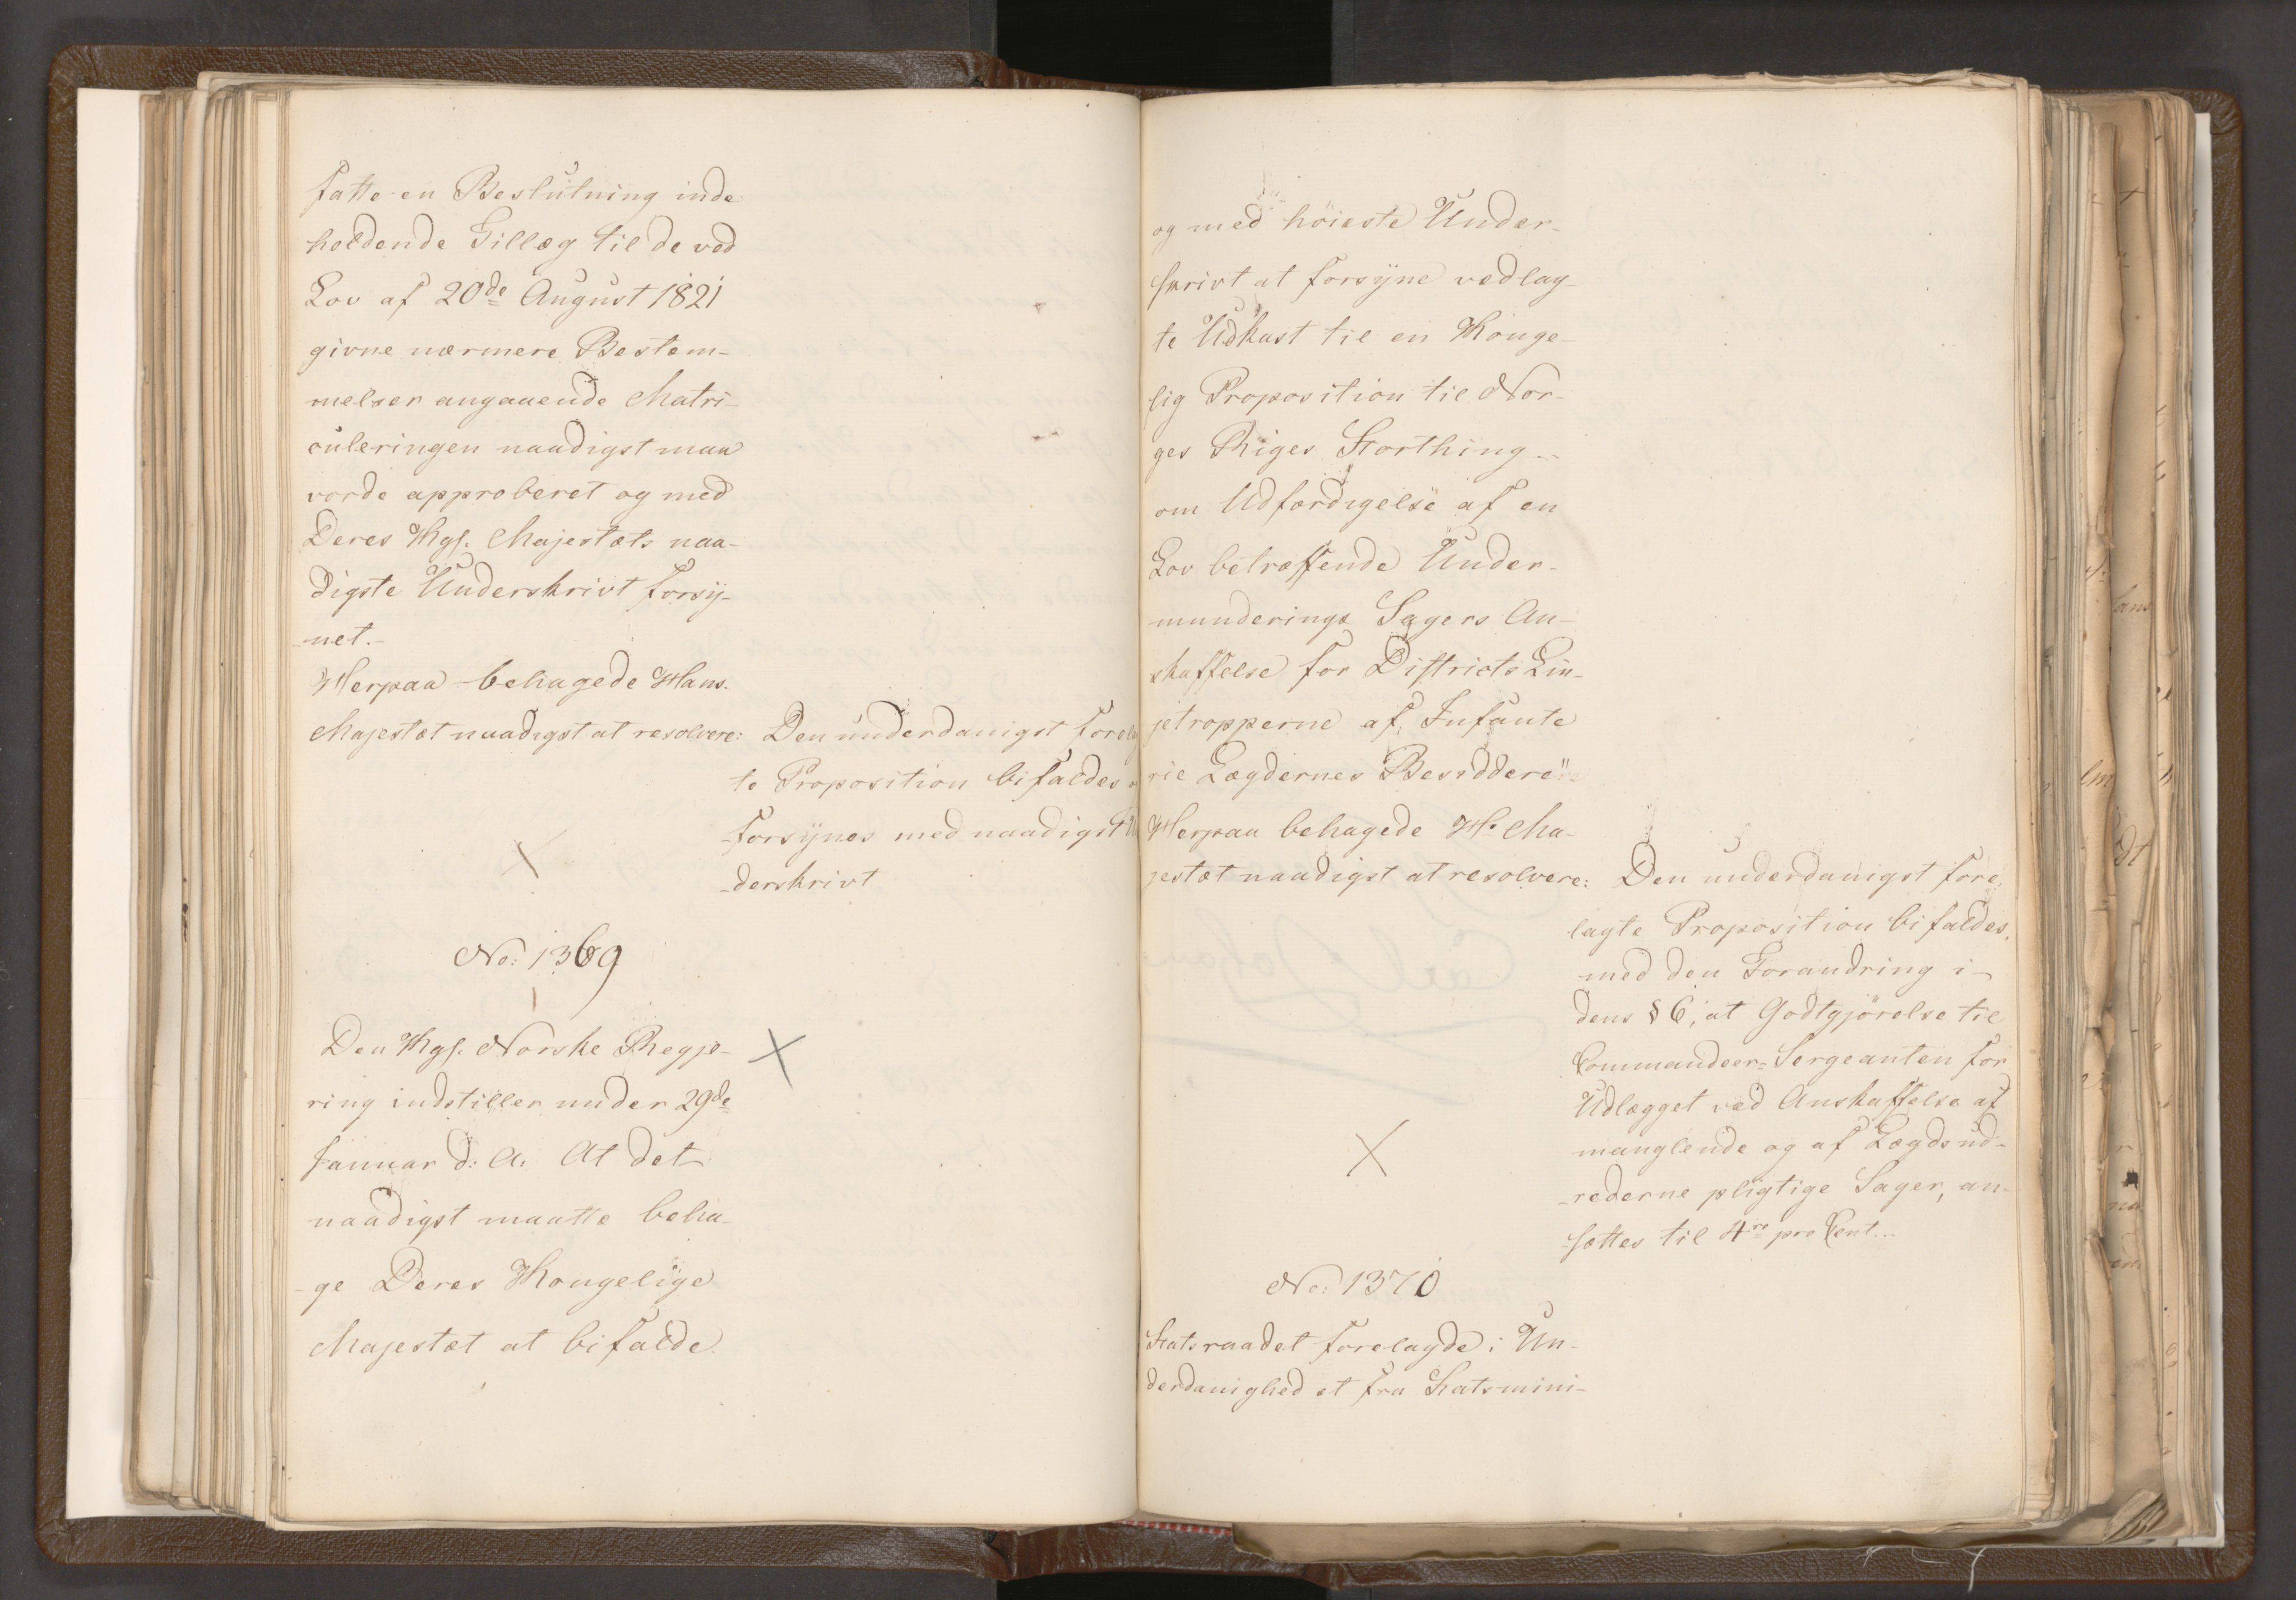 fatte en Beslutning inde
holdende Tillæg til de ved
Lov af 20de August 1821
givne nærmere Bestem-
melser angaaende Matri-
culeringen naadigst maa
vorde approberet og med
Deres Kgl. Majestæts naa-
digste Underskrivt forsÿ-
net.-
Herpaa behagede Hans
Majestæt naadigst at resolvere:
Den underdanigst forelag
te Proposition bifaldes
forsÿnes med naadigst
derskrivt
No: 1369
Den Kgl. Norske Regje-
ring indstiller under 29de
Januar d: A: At det
naadigst maatte beha-
ge Deres Kongelige
Majestæt at bifalde
og med höieste Under-
skrivt at forsÿne vedlag-
te Udkast til en Konge-
lig Proposition til Nor-
ges Riges Storthing
om Udfærdigelse af en
Lov betræffende Under-
munderings Sagers An-
skaffelse for Districts Lin-
jetropperne af Infante
rie Lægdernes Besiddere"
Herpaa behagede H: Ma-
jestæt naadigst at resolvere:
Den underdanigst fore
lagte Proposition bifaldes,
med den Forandring i
dens § 6, at Godtgjörelse til
Commandeer=Sergeanten for
Udlægget ved Anskaffelse af
manglende og af Lægdsud-
rederne pligtige Sager, an-
sættes til 4re pro Cent...
No: 1370
Statsraadet forelagde i Un-
derdanighed et fra Statsmini-